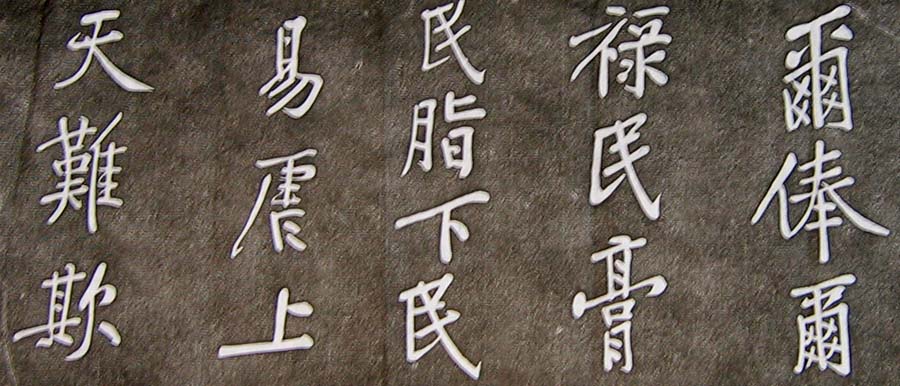 爾俸爾
禄民膏
民脂下民
易虐上
天難欺